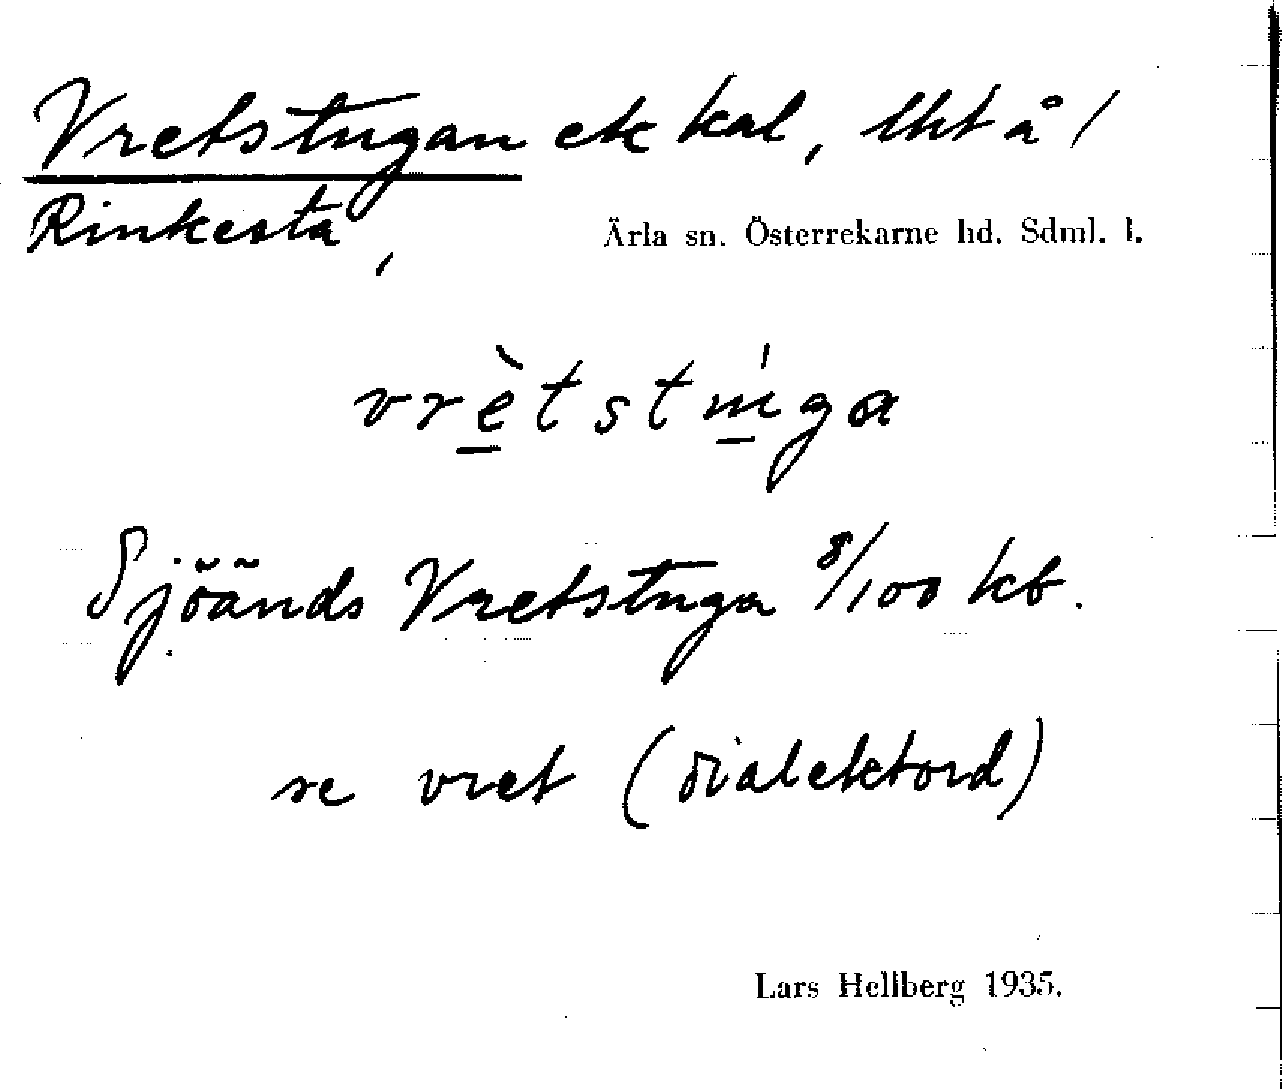 Vretstugan ek kal, lht å /
Rinkesta,
Ärla sn. Österrekarne hd. Sdml. l.
vrètstúga
Sjöänds Vretstuga 8/100 kb.
se vret (dialektord)
Lars Hellberg 1935.